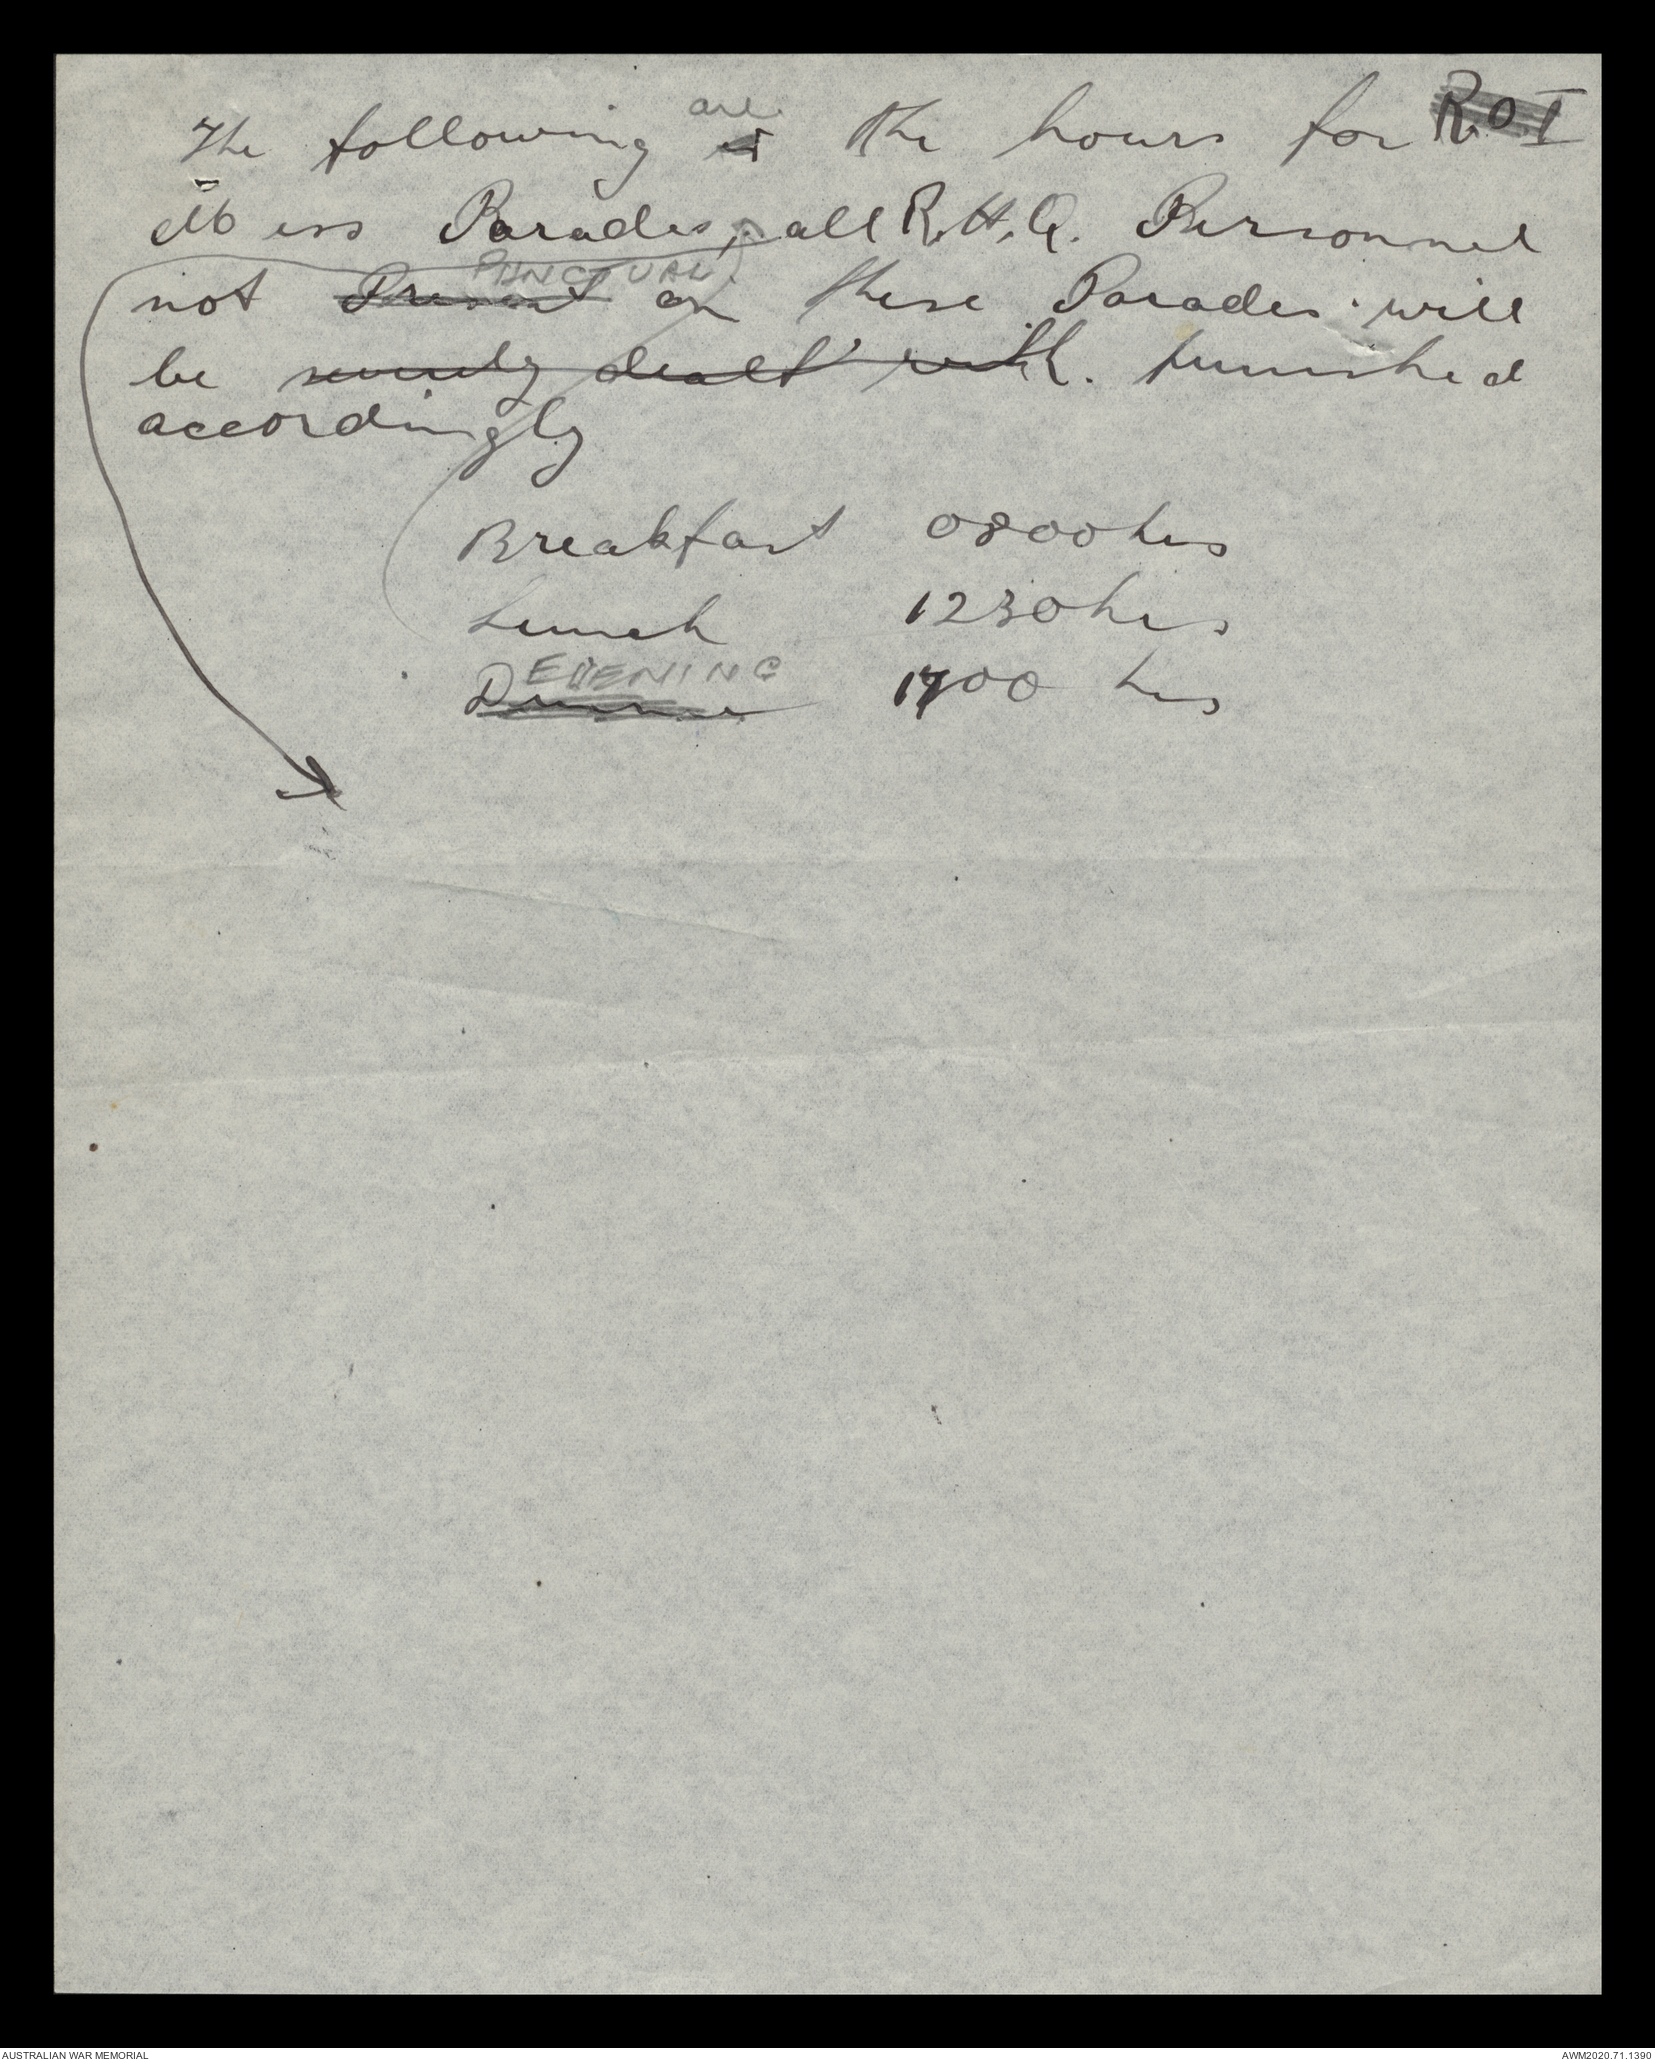 The following is are the hours for R.O.I
Mess Parades, all R.H.Q. Personnel
PUNCTUAL
not Present on these Parades will
be severely dealt with. punished
accordingly
Breakfast 0800 hrs
Lunch 1230 hrs
EVENING
Dinner 1700 hrs
AUSTRALIAN WAR MEMORIAL
AWM2020.71.1390